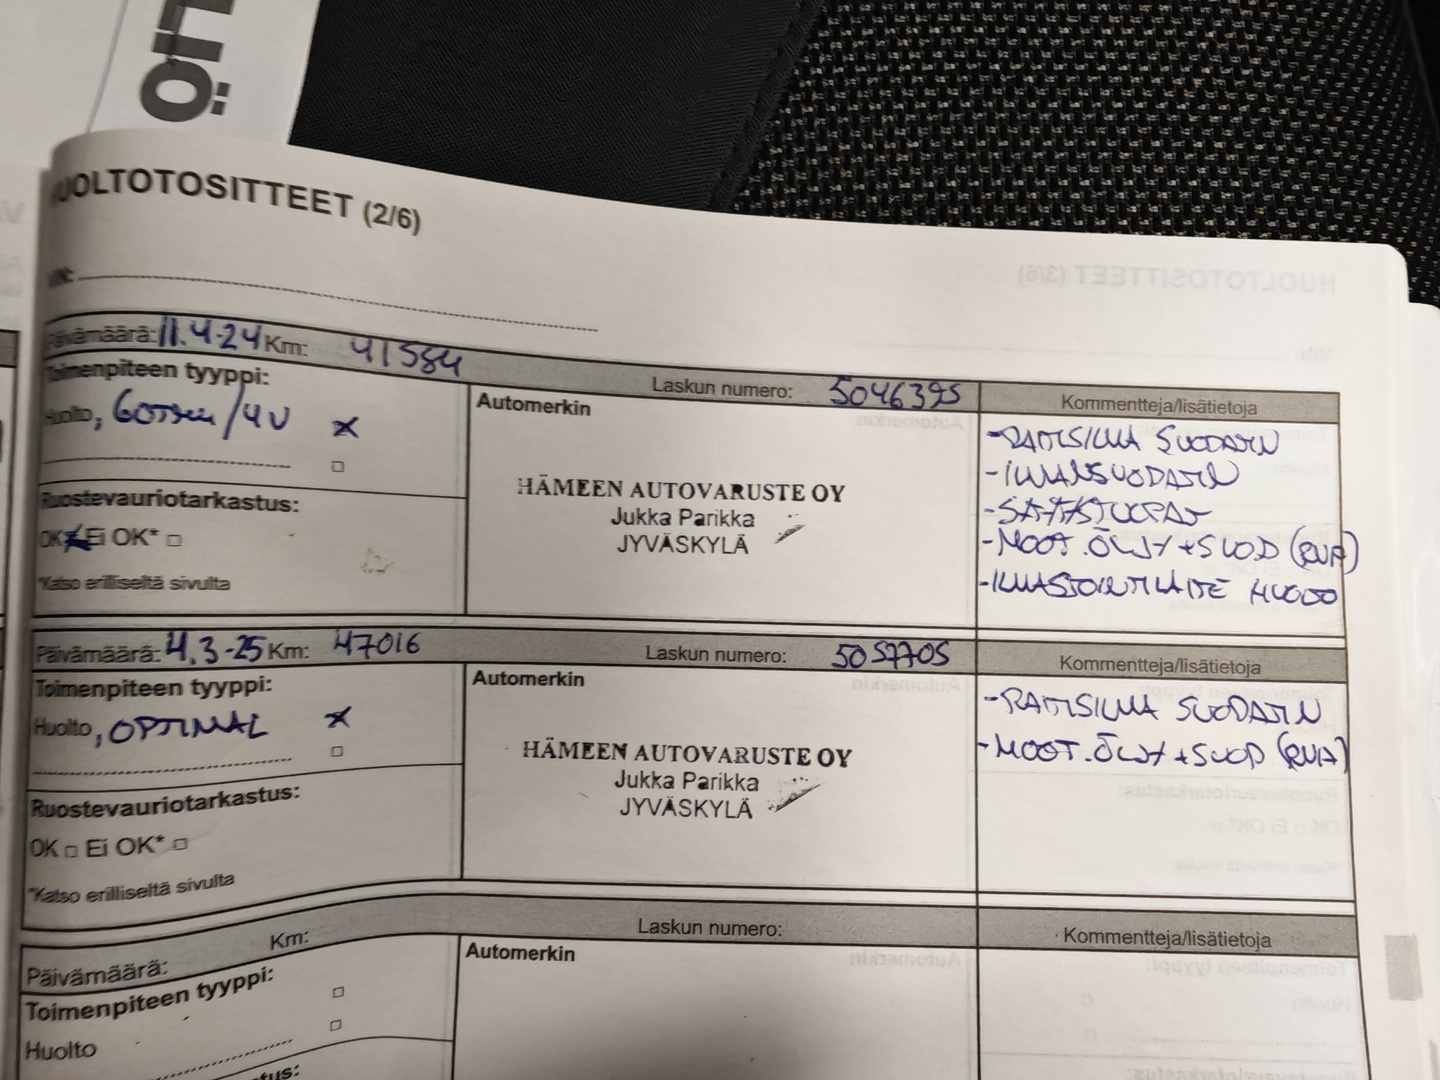 LIÖ
HUOLTOTOSITTEET (2/6)
VIN:
Päivämäärä: 11.4-24 Km: 41584 Laskun numero: 5046395 Kommentteja/lisätietoja
Toimenpiteen tyyppi:
Huolto, 60TKM/4V x
Automerkin
HÄMEEN AUTOVARUSTE OY
Jukka Parikka
JYVÄSKYLÄ
Ruostevauriotarkastus:
OK x Ei OK* □
*Katso erilliseltä sivulta
-RAITISILMA SUODATIN
-ILMANSUODATIN
-SYTYTYSTULPAT
-MOOT.ÖLJY+SUOD (RUA)
-ILMASTOINTILAITE HUOLTO
Päivämäärä: 4.3-25 Km: 47016 Laskun numero: 5057705 Kommentteja/lisätietoja
Toimenpiteen tyyppi:
Huolto, OPTIMAL x
Automerkin
HÄMEEN AUTOVARUSTE OY
Jukka Parikka
JYVÄSKYLÄ
Ruostevauriotarkastus:
OK □ Ei OK* □
*Katso erilliseltä sivulta
-RAITISILMA SUODATIN
-MOOT.ÖLJY+SUOD (RUA)
Päivämäärä: Km: Laskun numero: Kommentteja/lisätietoja
Toimenpiteen tyyppi:
Huolto
Automerkin